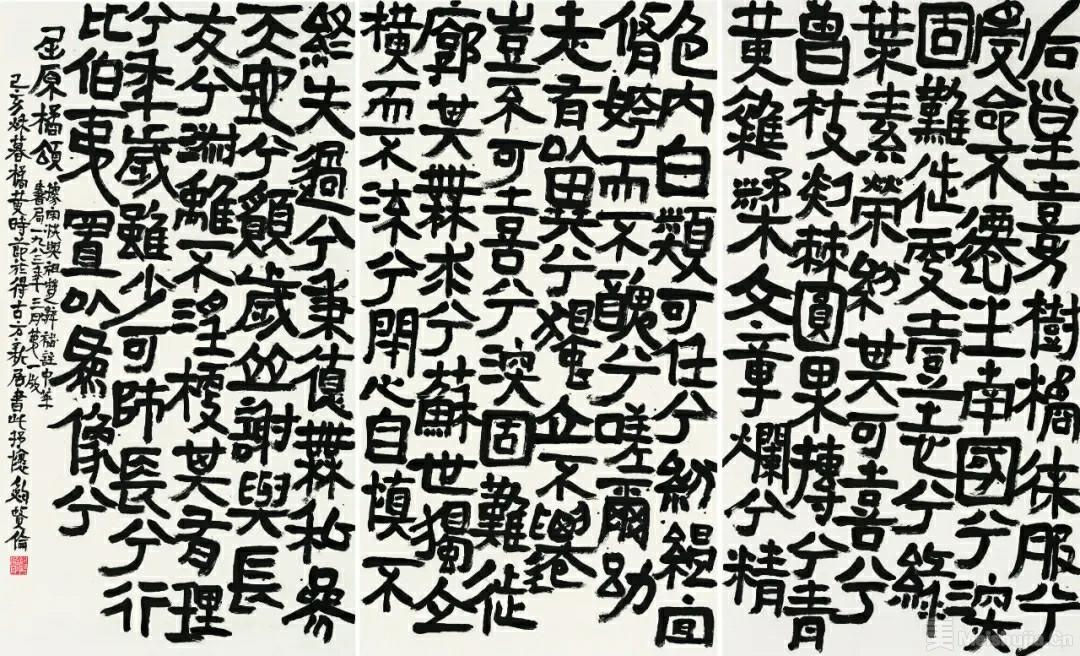 后皇嘉樹橘徠服兮
受命不遷生南國兮深
固難徙更壹志兮綠
葉素榮紛其可喜兮
曾枝剡棘圓果摶兮青
黃雜糅文章爛兮精
色內白類可任兮紛縕宜
脩姱而不醜兮嗟爾幼
志有以異兮獨立不遷
豈不可喜兮深固難徙
廓其無求兮蘇世獨立
橫而不流兮閉心自慎不
終失過兮秉德無私參
天地兮願歲並謝與長
友兮淑離不淫梗其有理
兮年歲雖少可師長兮行
比伯夷置以為像兮
屈原橘頌
據南宋洪興祖楚辭補註中華
書局一九八三年三月第一版
己亥秋暮橘黃時節於得古方新居書此抒懷